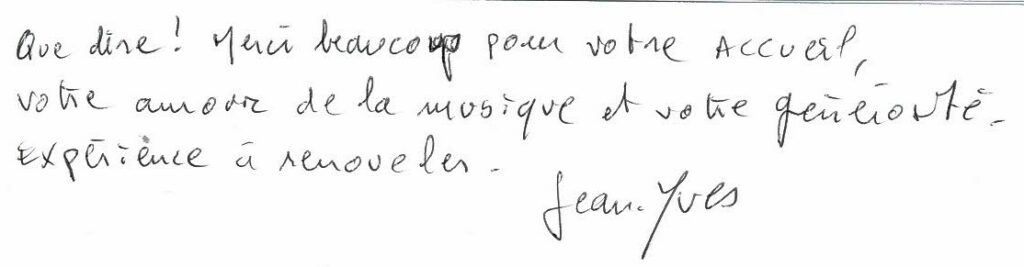 Que dire ! Merci beaucoup pour votre accueil,
votre amour de la musique et votre générosité.
Expérience à renouveler.
Jean-Yves